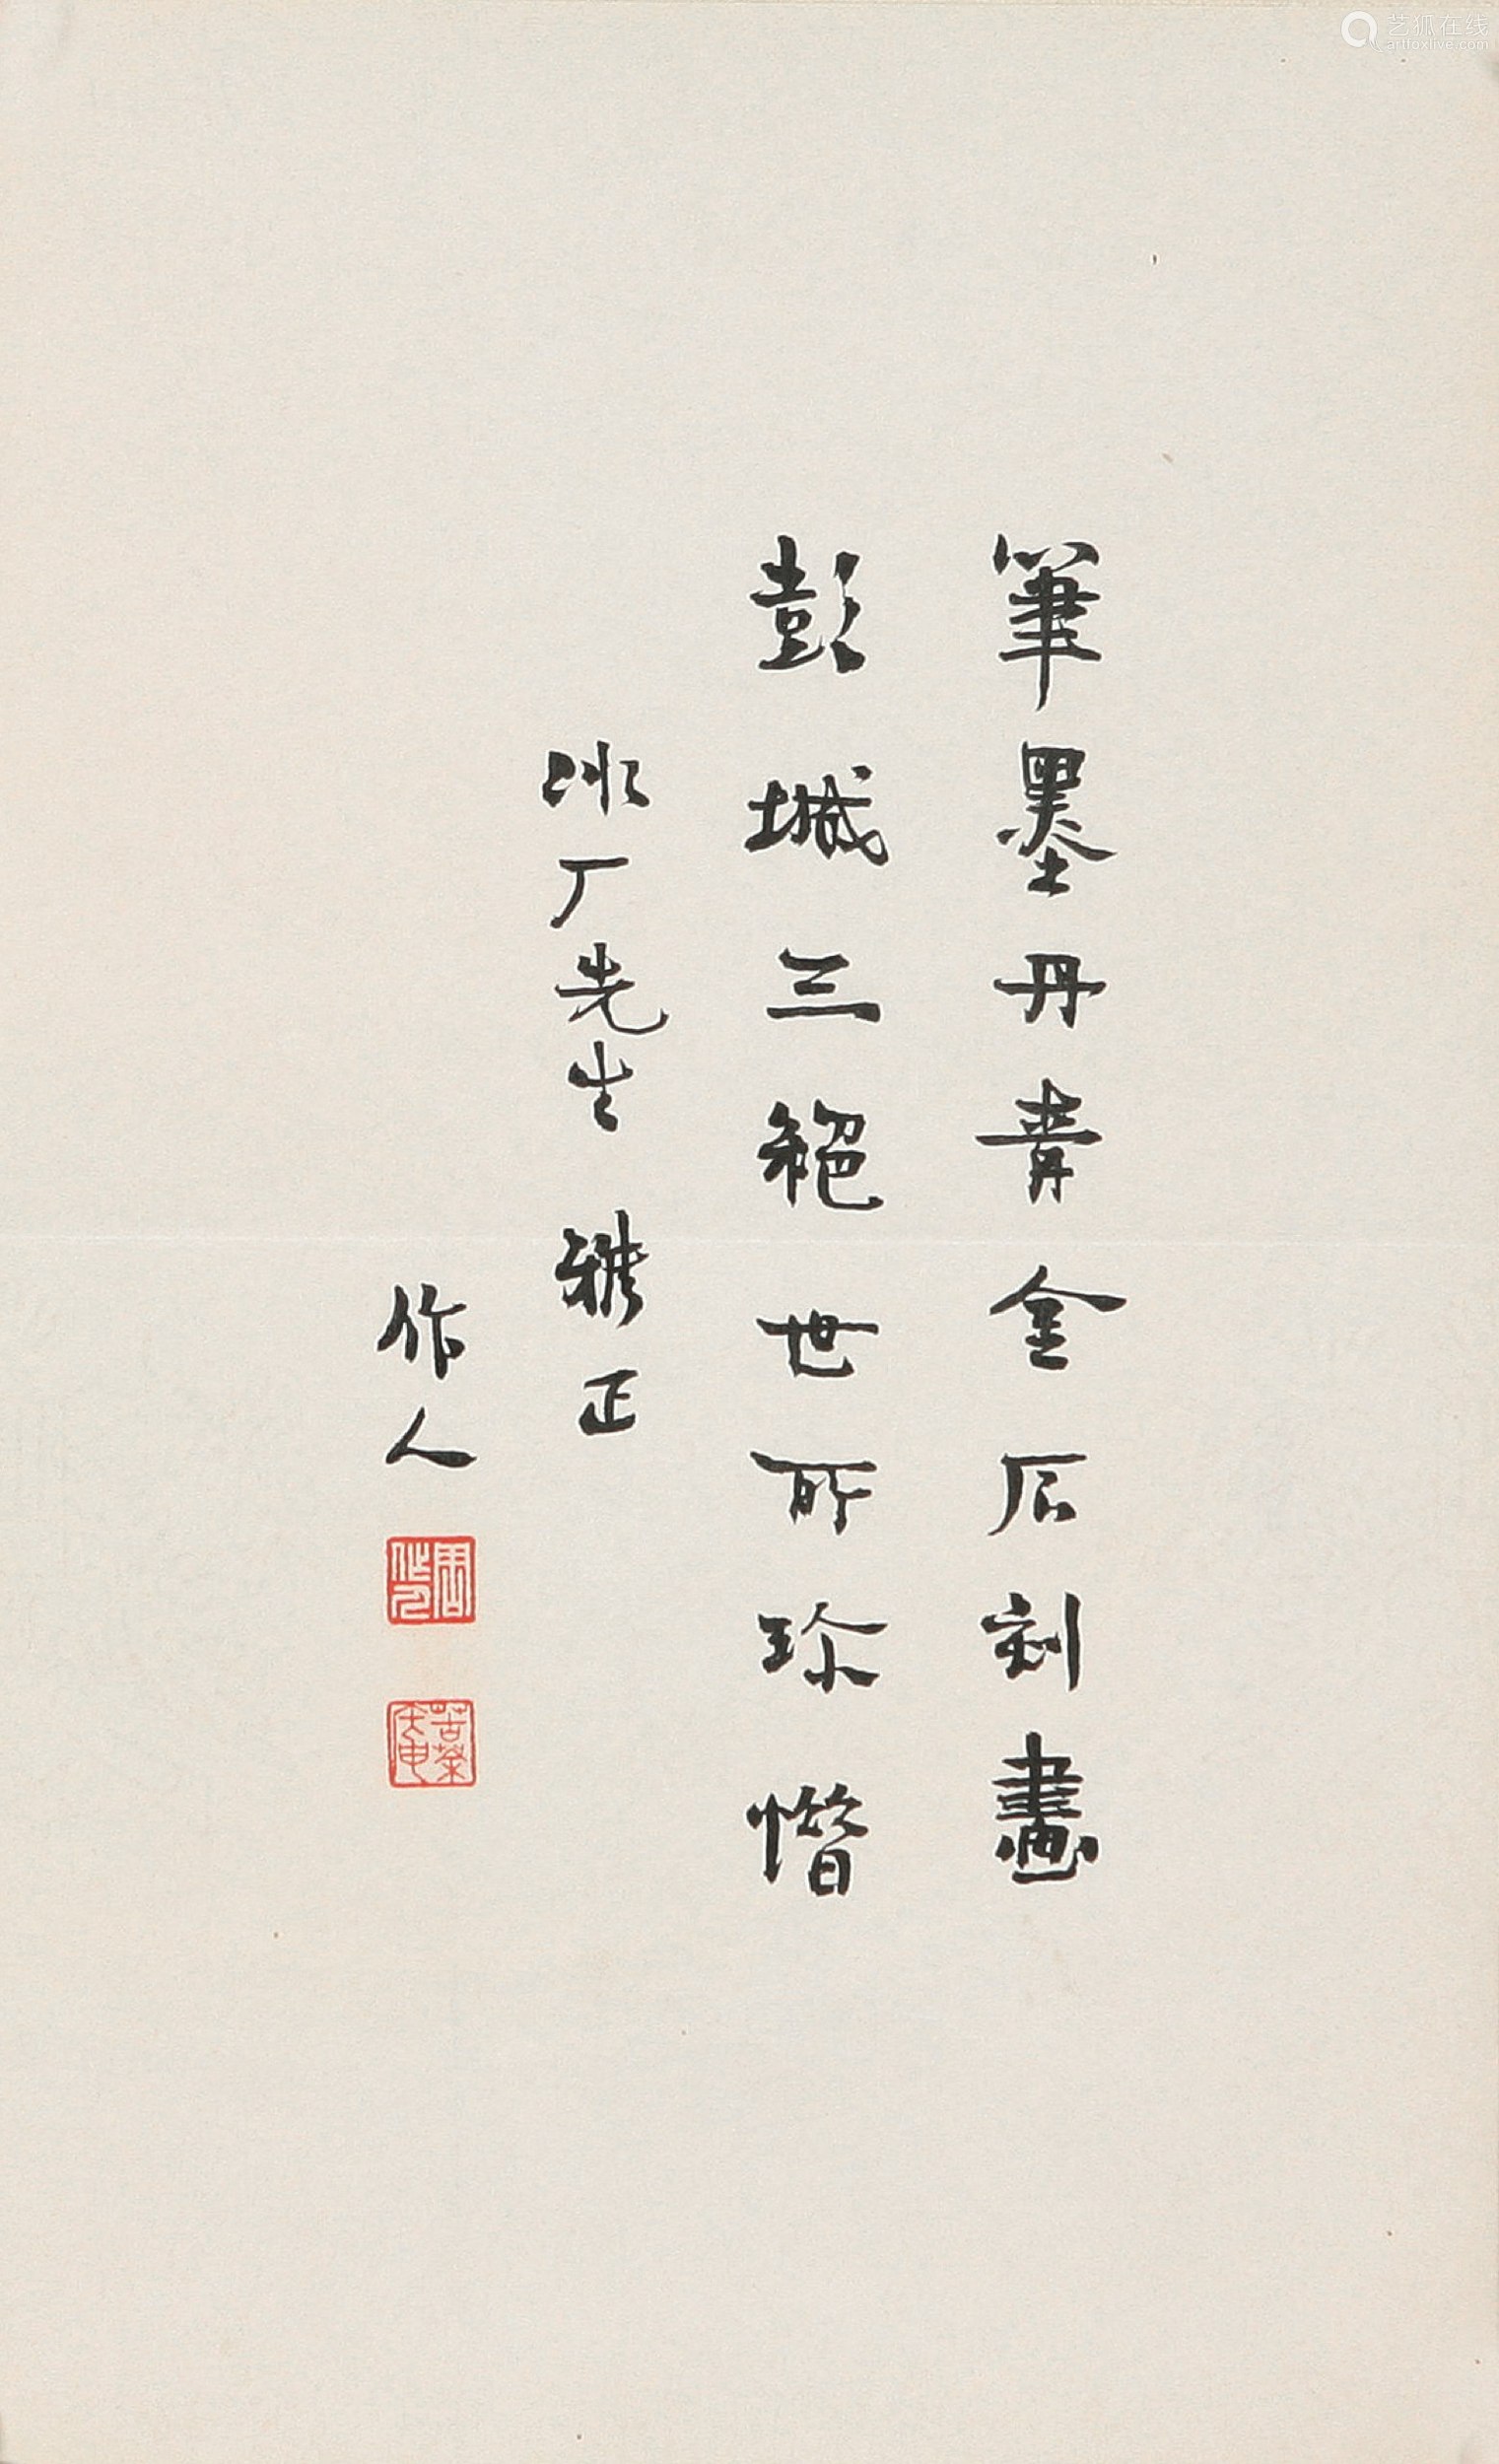 筆墨丹青金石刻畫
彭城三絕世所珍惜
冰厂先生 雅正
作人
周作人
苦茶庵
艺狐在线
artfoxlive.com